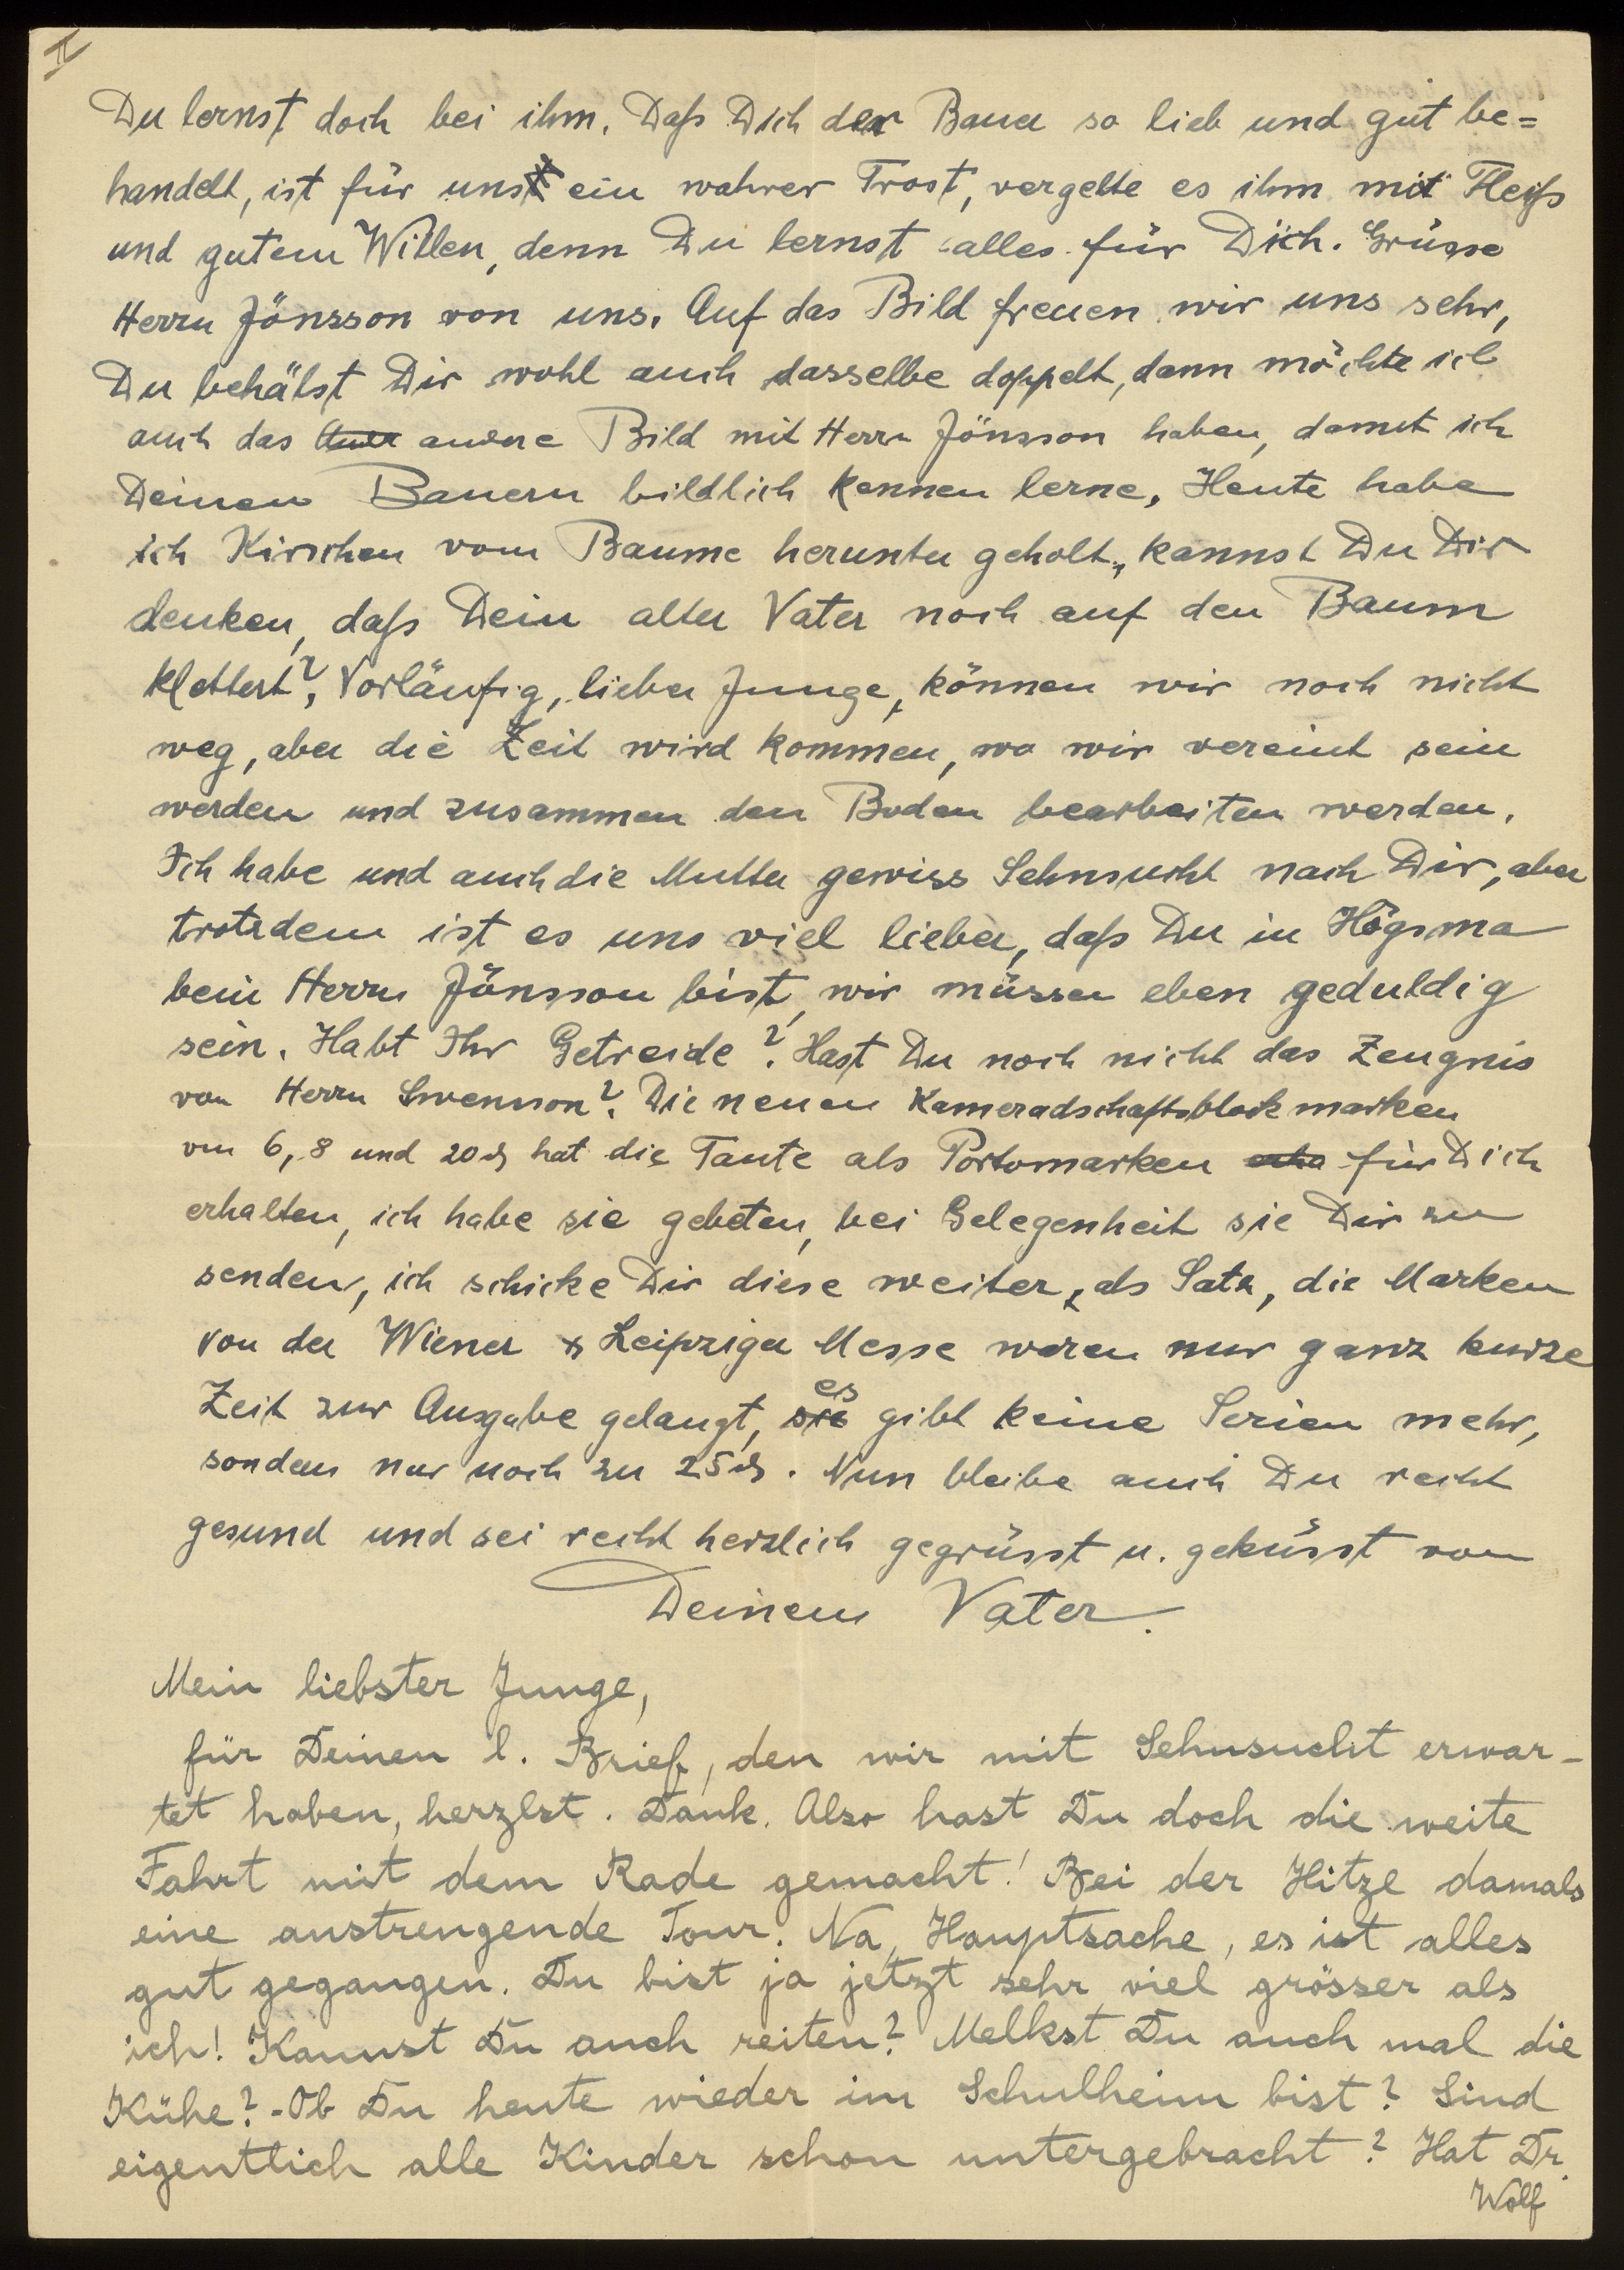 II
Du lernst doch bei ihm. Daß Dich der Bauer so lieb und gut be=
handelt, ist für uns ein wahrer Trost, vergelte es ihm mit Fleiß
und gutem Willen, denn Du lernst alles für Dich. Grüsse
Herrn Jönsson von uns. Auf das Bild freuen wir uns sehr,
Du behälst Dir wohl auch dasselbe doppelt, dann möchte ich
auch das andere Bild mit Herrn Jönsson haben, damit ich
Deinen Bauern bildlich kennen lerne. Heute habe
ich Kirschen vom Baume herunter geholt, kannst Du Dir
denken, daß Dein alter Vater noch auf den Baum
klettert? Vorläufig, lieber Junge, können wir noch nicht
weg, aber die Zeit wird kommen, wo wir vereint sein
werden und zusammen den Boden bearbeiten werden.
Ich habe und auch die Mutter gewiss Sehnsucht nach Dir, aber
trotzdem ist es uns viel lieber, daß Du in Högsma
beim Herrn Jönsson bist, wir müssen eben geduldig
sein. Habt Ihr Getreide? Hast Du noch nicht das Zeugnis
von Herrn Swensson? Die neuen Kameradschaftsblock marken
von 6, 8 und 20 ₰ hat die Tante als Portomarken für Dich
erhalten, ich habe sie gebeten, bei Gelegenheit sie Dir zu
senden, ich schicke Dir diese weiter, als Satz, die Marken
von der Wiener & Leipziger Messe waren nur ganz kurze
Zeit zur Ausgabe gelangt, es gibt keine Serien mehr,
sondern nur noch zu 25 ₰. Nun bleibe auch Du recht
gesund und sei recht herzlich gegrüsst u. geküsst von
Deinem Vater.
Mein liebster Junge,
für Deinen l. Brief, den wir mit Sehnsucht erwar-
tet haben, herzlst. Dank. Also hast Du doch die weite
Fahrt mit dem Rade gemacht! Bei der Hitze damals
eine anstrengende Tour. Na, Hauptsache, es ist alles
gut gegangen. Du bist ja jetzt sehr viel grösser als
ich! Kannst Du auch reiten? Melkst Du auch mal die
Kühe? - Ob Du heute wieder im Schulheim bist? Sind
eigentlich alle Kinder schon untergebracht? Hat Dr.
Wolf